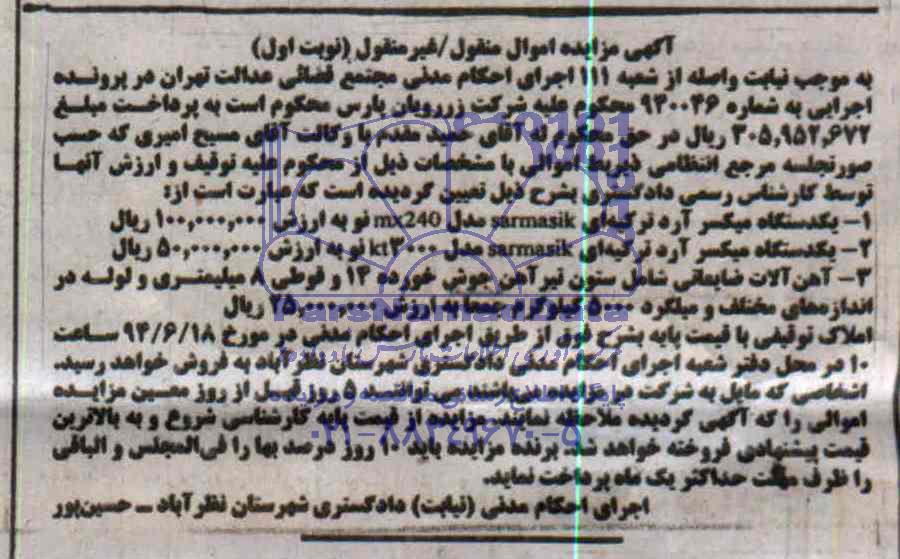 آگهی مزایده اموال منقول/غیرمنقول (نوبت اول)
به موجب نیابت واصله از شعبه ۱۱۱ اجرای احکام مدنی مجتمع قضائی عدالت تهران در پرونده
اجرایی به شماره ۹۳۰۰۴۶ محکوم علیه شرکت زررویان پارس محکوم است به پرداخت مبلغ
۳۰۵,۹۵۲,۶۷۲ ریال در حق محکوم له آقای مقدم با وکالت آقای مسیح امیری که حسب
صورتجلسه مرجع انتظامی ذیربط اموالی با مشخصات ذیل از محکوم علیه توقیف و ارزش آنها
توسط کارشناس رسمی دادگستری بشرح ذیل تعیین گردیده است که عبارت است از:
۱- یکدستگاه میکسر آرد ترکیه‌ای sarmasik مدل mx240 نو به ارزش ۱۰۰,۰۰۰,۰۰۰ ریال
۲- یکدستگاه میکسر آرد ترکیه‌ای sarmasik مدل kt۳۰۰۰ نو به ارزش ۵۰,۰۰۰,۰۰۰ ریال
۳- آهن آلات ضایعاتی شامل ستون تیرآهن جوش خورده ۱۴ و قوطی ۸ میلیمتری و لوله در
اندازه‌های مختلف و میلگرد ۵۰۰۰ کیلوگرم جمعا به ارزش ۲۵,۰۰۰,۰۰۰ ریال
املاک توقیفی با قیمت پایه بشرح فوق از طریق اجرای احکام مدنی در مورخ ۹۴/۶/۱۸ ساعت
۱۰ در محل دفتر شعبه اجرای احکام مدنی دادگستری شهرستان نظرآباد به فروش خواهد رسید.
اشخاصی که مایل به شرکت در مزایده می‌باشند می‌توانند ۵ روز قبل از روز معین مزایده
اموالی را که آگهی گردیده ملاحظه نمایند. مزایده از قیمت پایه کارشناسی شروع و به بالاترین
قیمت پیشنهادی فروخته خواهد شد. برنده مزایده باید ۱۰ روز درصد بها را فی‌المجلس و الباقی
را ظرف مهلت حداکثر یک ماه پرداخت نماید.
اجرای احکام مدنی (نیابت) دادگستری شهرستان نظرآباد ــ حسین‌پور
ParsNamadData
۰۲۱-۸۸۳۴۹۶۷۰-۵